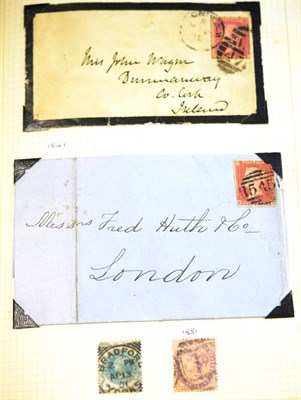 Miss John Wagner
Dunmanway
Co. Cork
Ireland
1841
545
Messrs Fred Huth & Co
London
1881
BRADFORD
AP 13
91